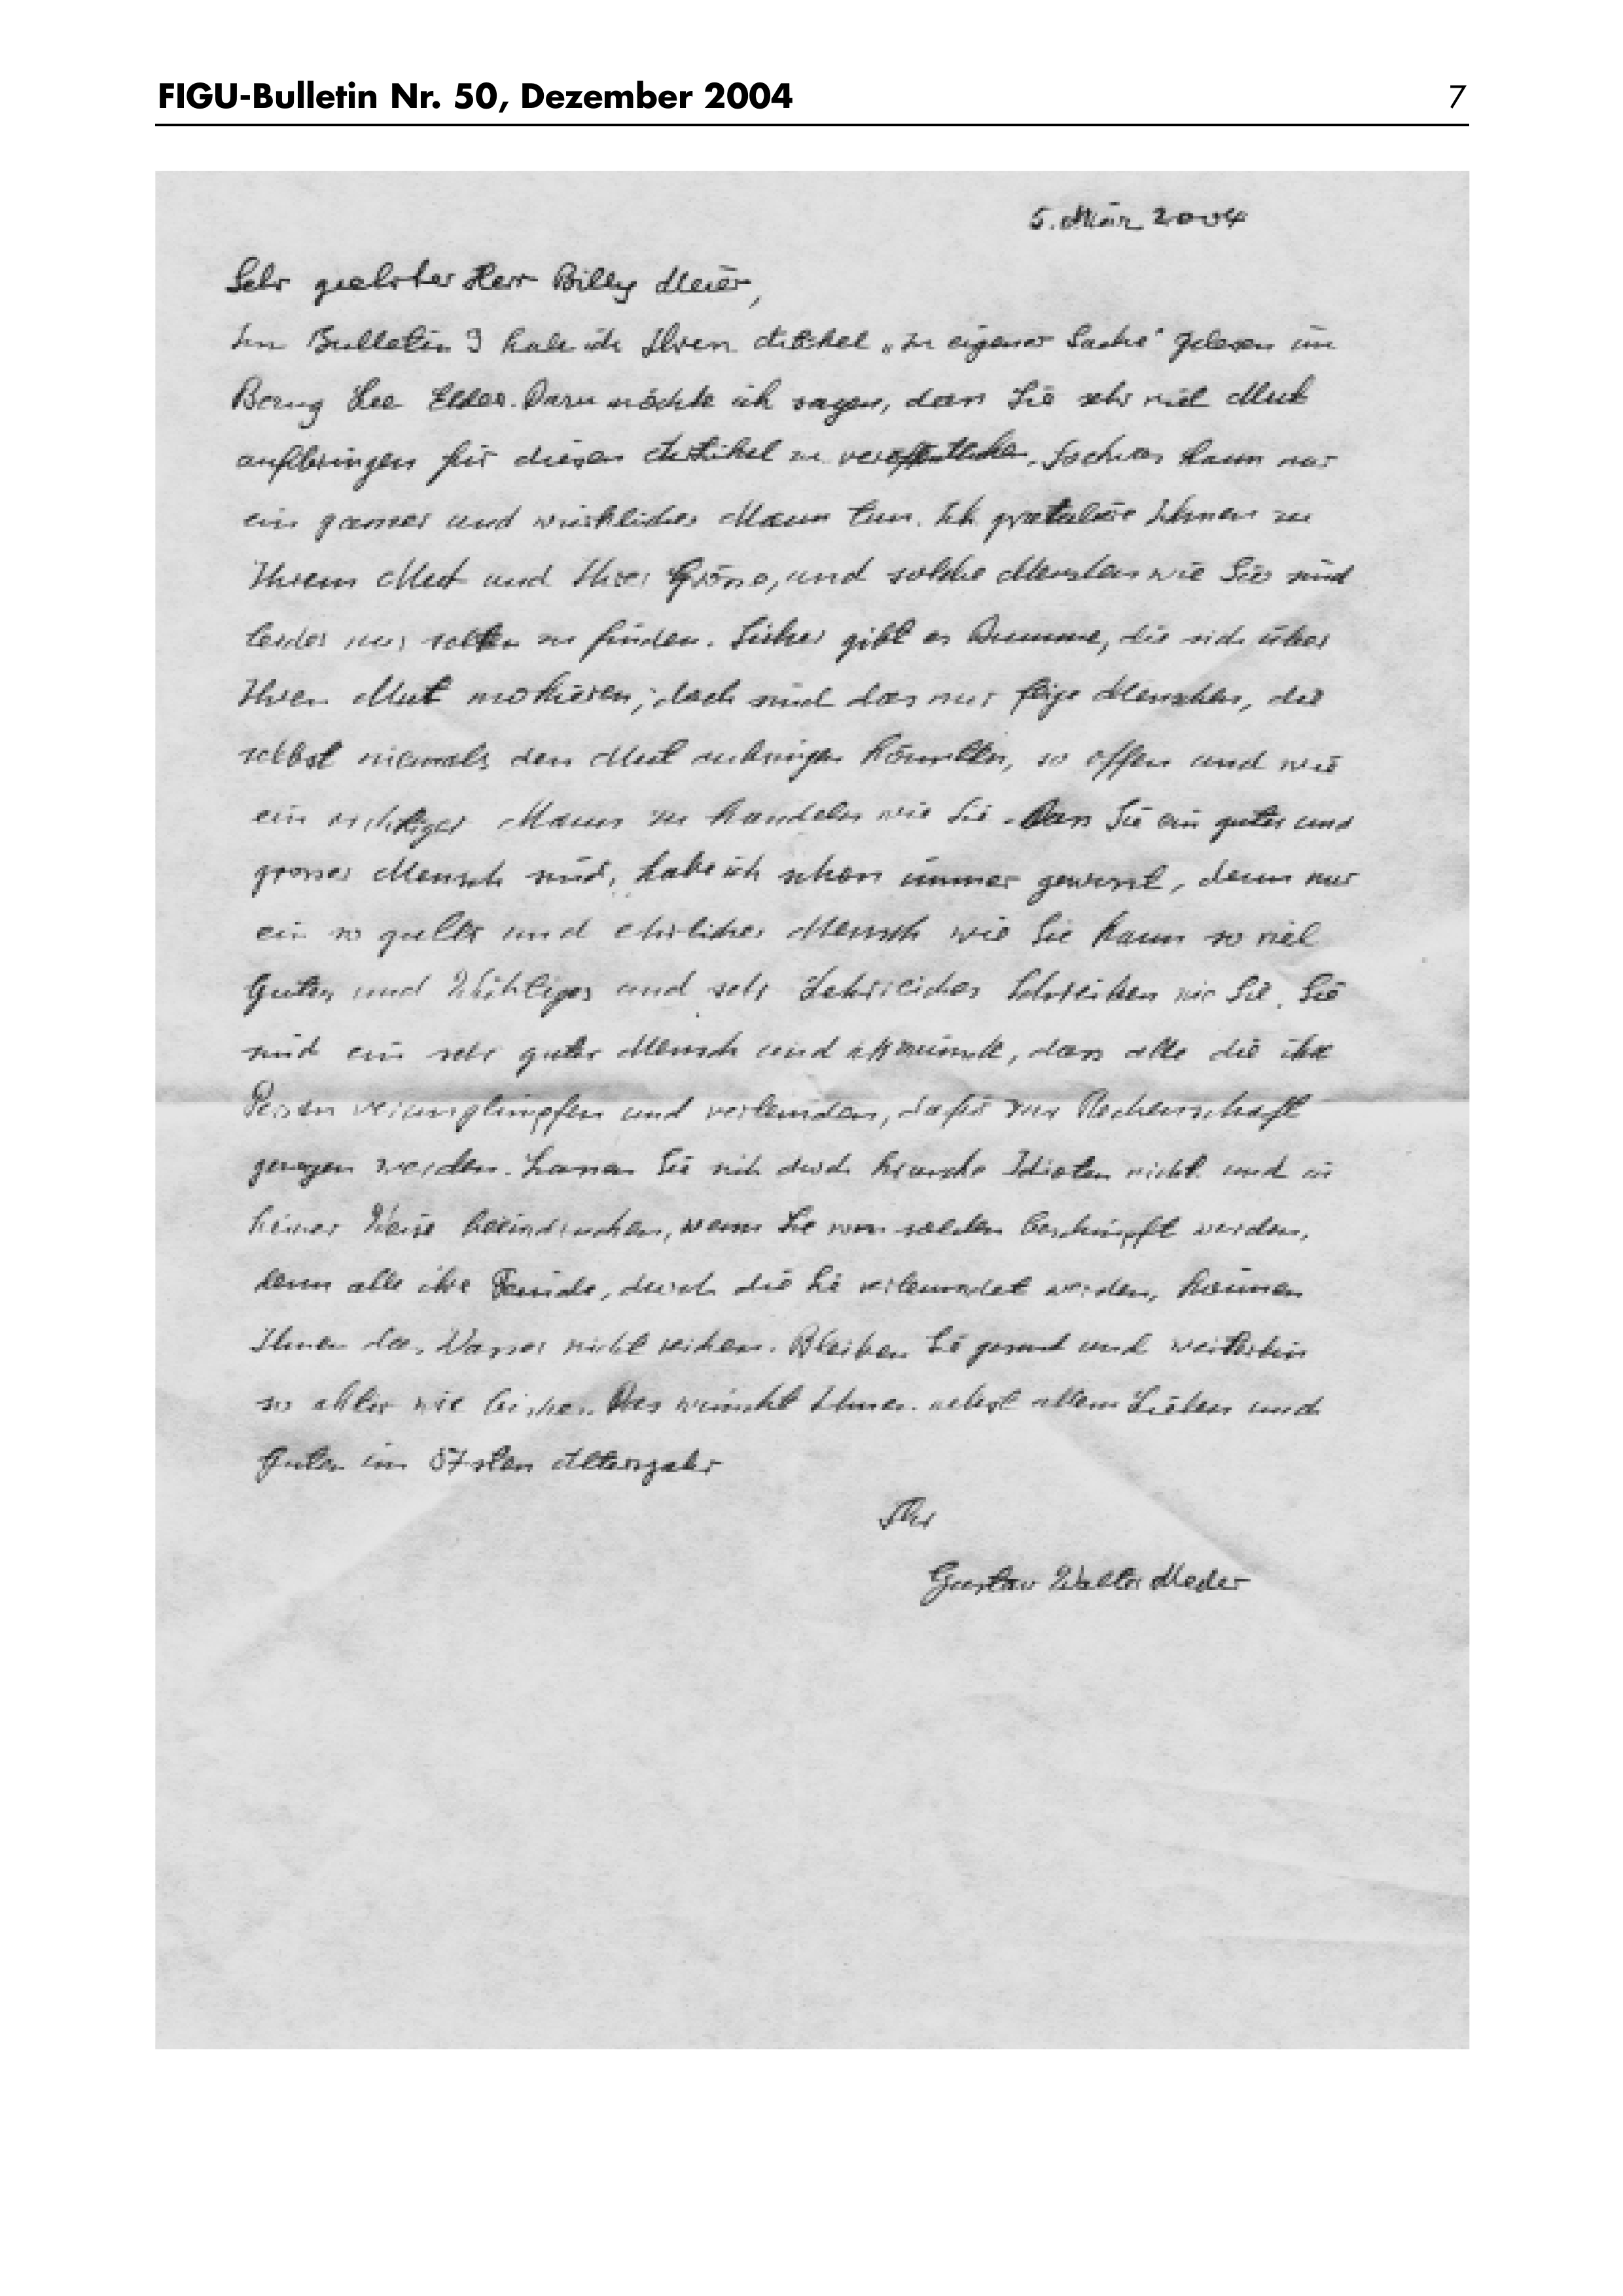 FIGU-Bulletin Nr. 50, Dezember 2004 7
5. März 2004
Sehr geehrter Herr Billy Meier,
Im Bulletin 9 habe ich Ihren Artikel „In eigener Sache" gelesen im
Bezug Lee Elder. Dazu möchte ich sagen, dass Sie sehr viel Mut
aufbringen für diesen Artikel zu veröffentlichen. Sochwas kann nur
ein ganzer und wirklicher Mann tun. Ich gratuliere Ihnen zu
Ihrem Mut und Ihrer Grösse, und solche Menschen wie Sie sind
leider nur selten zu finden. Sicher gibt es Dumme, die sich über
Ihren Mut mokieren; doch sind das nur feige Menschen, die
selbst niemals den Mut aufbringen könnten, so offen und wie
ein richtiger Mann zu handeln wie Sie. Dass Sie ein guter und
grosser Mensch sind, habe ich schon immer gewusst, denn nur
ein so guter und ehrlicher Mensch wie Sie kann so viel
Gutes und Wichtiges und sehr Lehrreiches Schreiben wie Sie. Sie
sind ein sehr guter Mensch und ich wünsche, dass alle die ihre
Person verunglimpfen und verleumden, dafür zur Rechenschaft
gezogen werden. Lassen Sie sich durch kranke Idioten nicht und in
keiner Weise beeindrucken, wenn Sie von solchen beschimpft werden,
denn alle ihre Feinde, durch die Sie verleumdet werden, können
Ihnen das Wasser nicht reichen. Bleiben Sie gesund und weiterhin
so aktiv wie bisher. Das wünscht Ihnen nebst allem Lieben und
Guten im 87sten Altersjahr
Ihr
Gustav Walter Meder